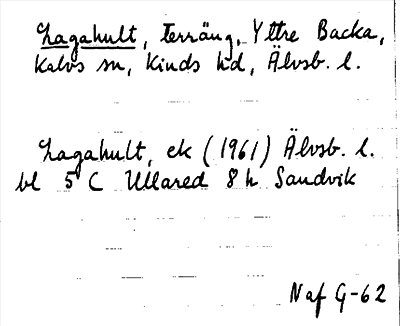 Lagahult, terräng, Yttre Backa,
Kalvs sn, Kinds hd, Älvsb. l.
Lagahult, ek (1961) Älvsb. l.
bl 5 C Ullared 8 h Sandvik
Naf G-62